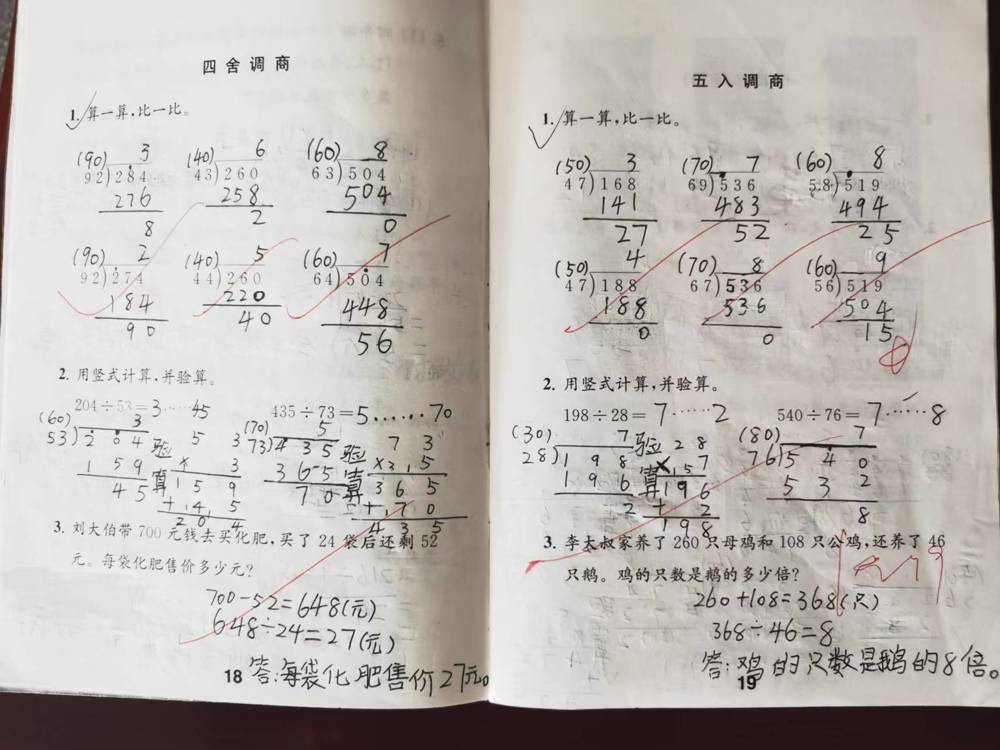 四舍调商
1. 算一算,比一比。
(90) 3 (40) 6 (60) 8
92)284 43)260 63)504
276 258 504
8 2 0
(90) 2 (40) 5 (60) 7
92)274 44)260 64)504
184 220 448
90 40 56
2. 用竖式计算,并验算。
204÷53=3……45 435÷73=5……70
(60) 3 (70) 5
53)204 验算 53 73)435 验算 73
159 ×3 365 ×5
45 159 70 365
+45 +70
204 435
3. 刘大伯带 700 元钱去买化肥,买了 24 袋后还剩 52
元。每袋化肥售价多少元?
700-52=648(元)
648÷24=27(元)
答:每袋化肥售价27元。
18
五入调商
1. 算一算,比一比。
(50) 3 (70) 7 (60) 8
47)168 69)536 58)519
141 483 494
27 52 25
(50) 4 (70) 8 (60) 9
47)188 67)536 56)519
188 536 504
0 0 15
2. 用竖式计算,并验算。
198÷28=7……2 540÷76=7……8
(30) 7 (80) 7
28)198 验算 28 76)540
196 ×7 532
2 196 8
+2
198
3. 李大叔家养了 260 只母鸡和 108 只公鸡,还养了 46
只鹅。鸡的只数是鹅的多少倍?
260+108=368(只)
368÷46=8
答:鸡的只数是鹅的8倍。
19